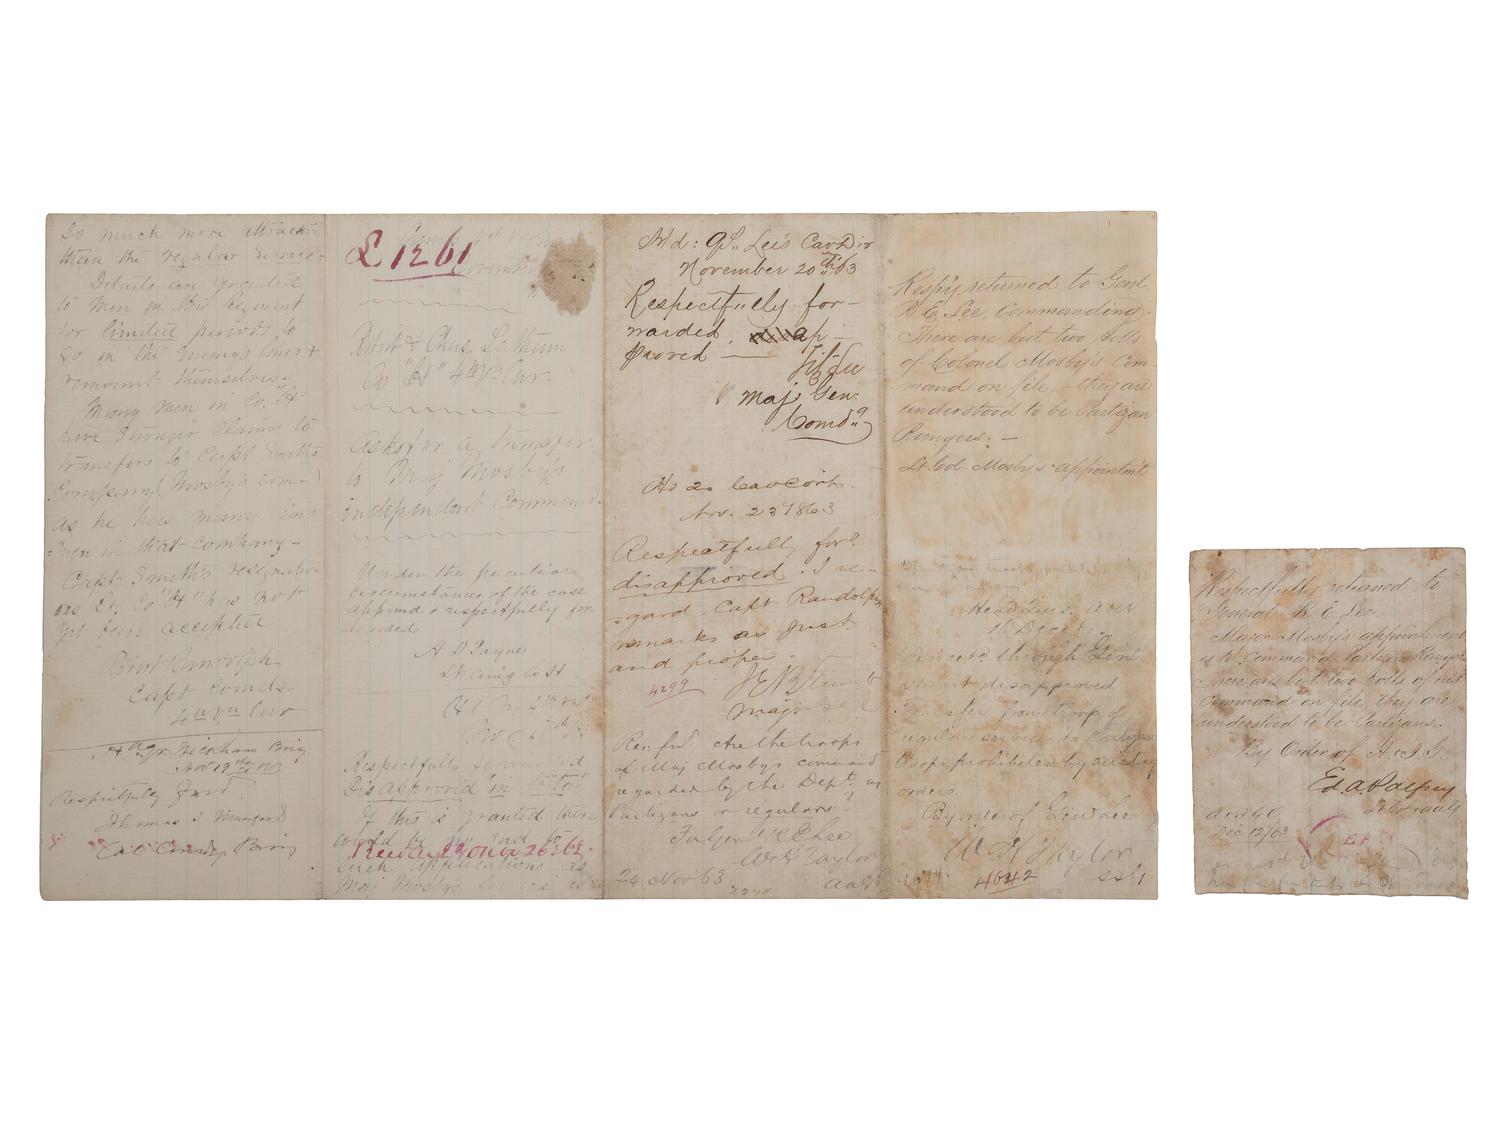 so much more attractive
than the regular service -
Details are granted
to men in this Regiment
for limited periods to
go in the enemy's lines &
remount themselves.
Many men in Co. "H"
have stronger claims to
transfers to Capt Smith's
Company (Mosby's com-)
as he has many
even in that company -
Capt Smith's resignation
as Lt. Co "H" has not
yet been accepted
Robert Randolph
Capt Comdg
4th Va Cav
Hd qrs Wickhams Brig
Nov 19th 63
Respectfully ford
Thomas T Munford
Col Comdg Brig
£ 1261
November
Robt & Chas Latham
Co "H" 4th Va Cav.
Asks for a transfer
to Maj Mosby's
independent Command.
Under the peculiar
circumstances of the case
approved & respectfully for-
warded
A D Payne
Lt cmg Co H
Nov 17th
Respectfully forwarded
Disapproved in toto
If this is granted there
would be no end to
Nov 26th 63.
such applications as
Maj Mosby's service is
Hd: Qrs Lee's Cav Div
November 20th 63
Respectfully for-
warded, ap-
proved —
Fitz Lee
Maj Gen:
Comdg
Hd Qs Cav Corps.
Nov. 23 1863
Respectfully ford
disapproved. I re-
gard Capt Randolphs
remarks as just
and proper.
4299
J E B Stuart
Maj. Genl
Res: fwd Are the troops
of Maj Mosby's command
regarded by the Dept as
Partizans or regulars?
For Genl R E Lee
W H Taylor
24 Nov 63
AAG
Resp'y returned to Genl
R E Lee, Commanding.
There are but two Rolls
of Colonel Mosby's Com-
mand on file, - they are
understood to be Partizan
Rangers. -
Lt. Col. Mosby's appointm't
Head Qrs. ANV
16 Decr
Respectfy through Genl
Stuart disapproved
Transfer from troop of
regular service to Partizan
troops prohibited by existing
orders.
By order of Genl Lee
W H Taylor
4642
Respectfully returned to
General R. E. Lee.
Major Mosby's appointment
is to command Partizan Rangers
There are but two rolls of his
Command on file, they are
understood to be Partizans.
By Order of A & I G.
Ed. A Palfrey
Lt Col & AAG
A & I G O
Dec 12/63